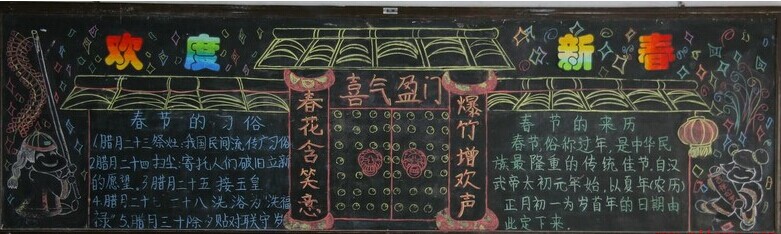 欢度
新春
喜气盈门
春花含笑意
爆竹增欢声
春节的习俗
1.腊月二十三祭灶:我国民间流传广习俗
2腊月二十四扫尘:寄托人们破旧立新
的愿望。3腊月二十五 接玉皇
4.腊月二十七二十八洗浴为"洗福
禄"5.腊月三十除夕贴对联守岁
春节的来历
春节,俗称过年,是中华民
族最隆重的传统佳节,自汉
武帝太初元年始,以夏年(农历)
正月初一为岁首年的日期由
此定下来.